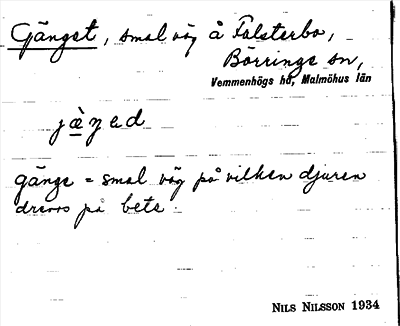 Gänget, smal väg å Falsterbo,
Börringe sn,
Vemmenhögs hd, Malmöhus län
gänge = smal väg på vilken djuren
drevos på bete.
NILS NILSSON 1934